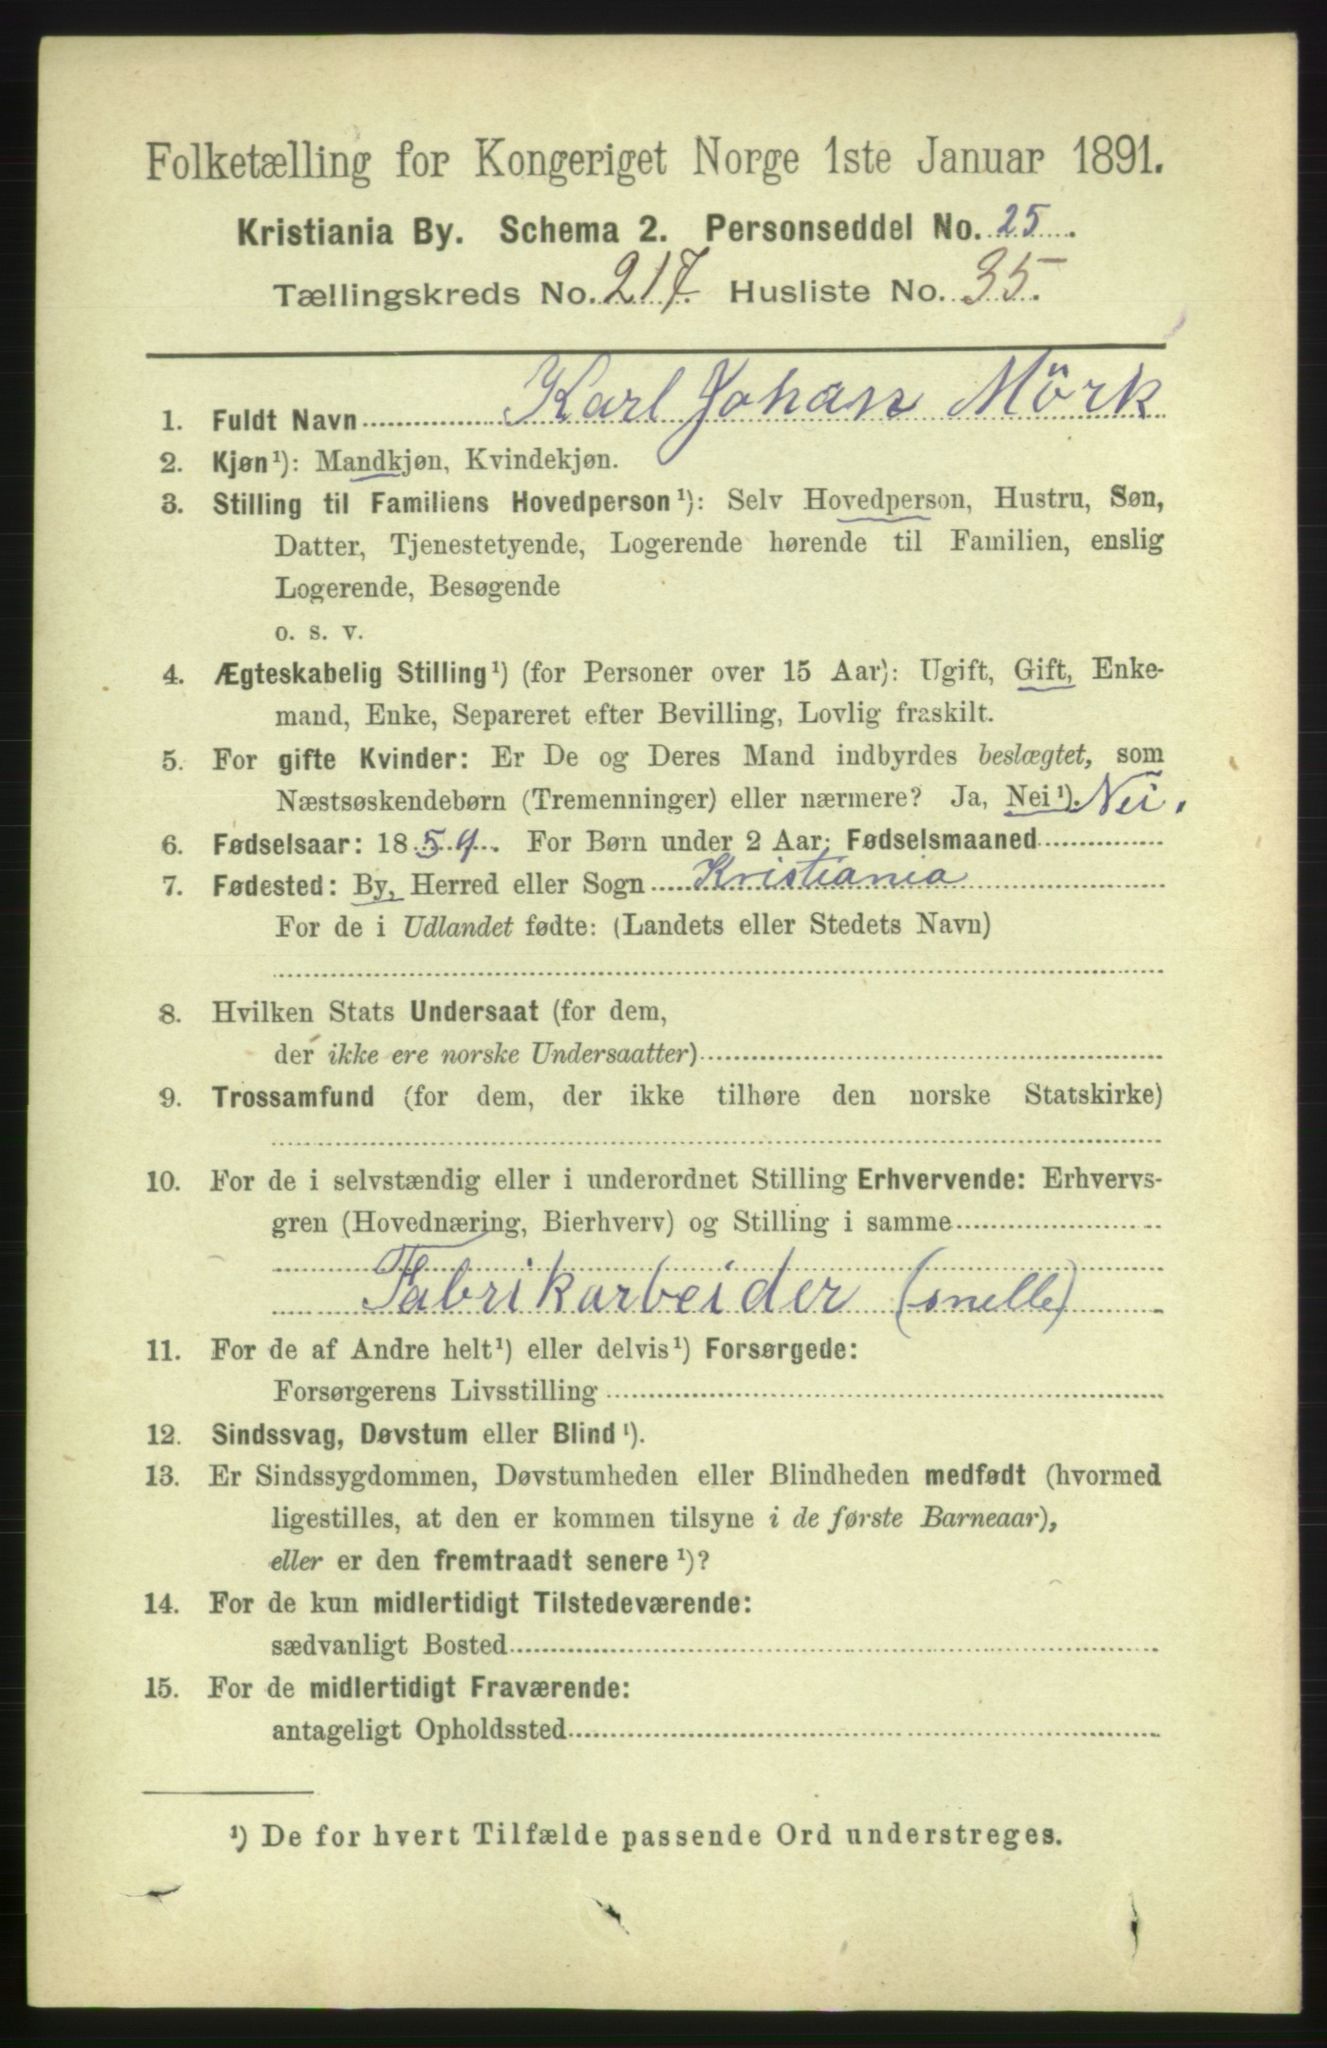 Folketælling for Kongeriget Norge 1ste Januar 1891.
Kristiania By. Schema 2. Personseddel No. 25.
Tællingskreds No. 217. Husliste No. 35.
1. Fuldt Navn Karl Johan Mörk
2. Kjøn¹): Mandkjøn, Kvindekjøn.
3. Stilling til Familiens Hovedperson¹): Selv Hovedperson, Hustru, Søn,
Datter, Tjenestetyende, Logerende hørende til Familien, enslig
Logerende, Besøgende
o. s. v.
4. Ægteskabelig Stilling¹) (for Personer over 15 Aar): Ugift, Gift, Enke-
mand, Enke, Separeret efter Bevilling, Lovlig fraskilt.
5. For gifte Kvinder: Er De og Deres Mand indbyrdes beslægtet, som
Næstsøskendebørn (Tremenninger) eller nærmere? Ja, Nei¹). Nei.
6. Fødselsaar: 1859. For Børn under 2 Aar: Fødselsmaaned
7. Fødested: By, Herred eller Sogn Kristiania
For de i Udlandet fødte: (Landets eller Stedets Navn)
8. Hvilken Stats Undersaat (for dem,
der ikke ere norske Undersaatter)
9. Trossamfund (for dem, der ikke tilhøre den norske Statskirke)
10. For de i selvstændig eller i underordnet Stilling Erhvervende: Erhvervs-
gren (Hovednæring, Bierhverv) og Stilling i samme
Fabrikarbeider
11. For de af Andre helt¹) eller delvis¹) Forsørgede:
Forsørgerens Livsstilling
12. Sindssvag, Døvstum eller Blind¹).
13. Er Sindssygdommen, Døvstumheden eller Blindheden medfødt (hvormed
ligestilles, at den er kommen tilsyne i de første Barneaar),
eller er den fremtraadt senere¹)?
14. For de kun midlertidigt Tilstedeværende:
sædvanligt Bosted
15. For de midlertidigt Fraværende:
antageligt Opholdssted
¹) De for hvert Tilfælde passende Ord understreges.